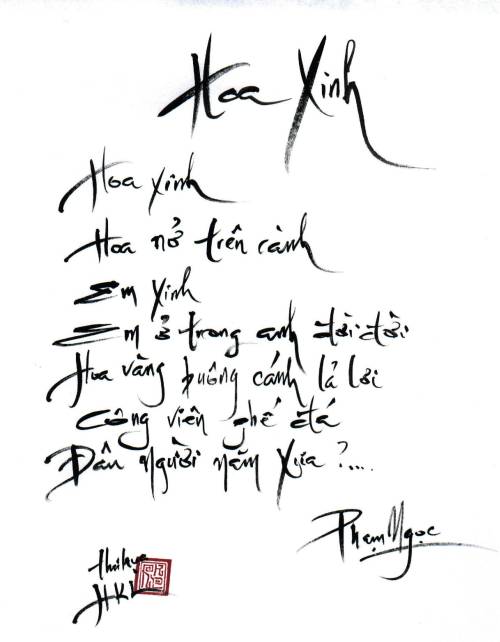 Hoa Xinh
Hoa xinh
Hoa nở trên cành
Em xinh
Em ở trong anh đời đời
Hoa vàng buông cánh lả lơi
Công viên ghế đá
Dấu người năm xưa ?....
Phạm Ngọc